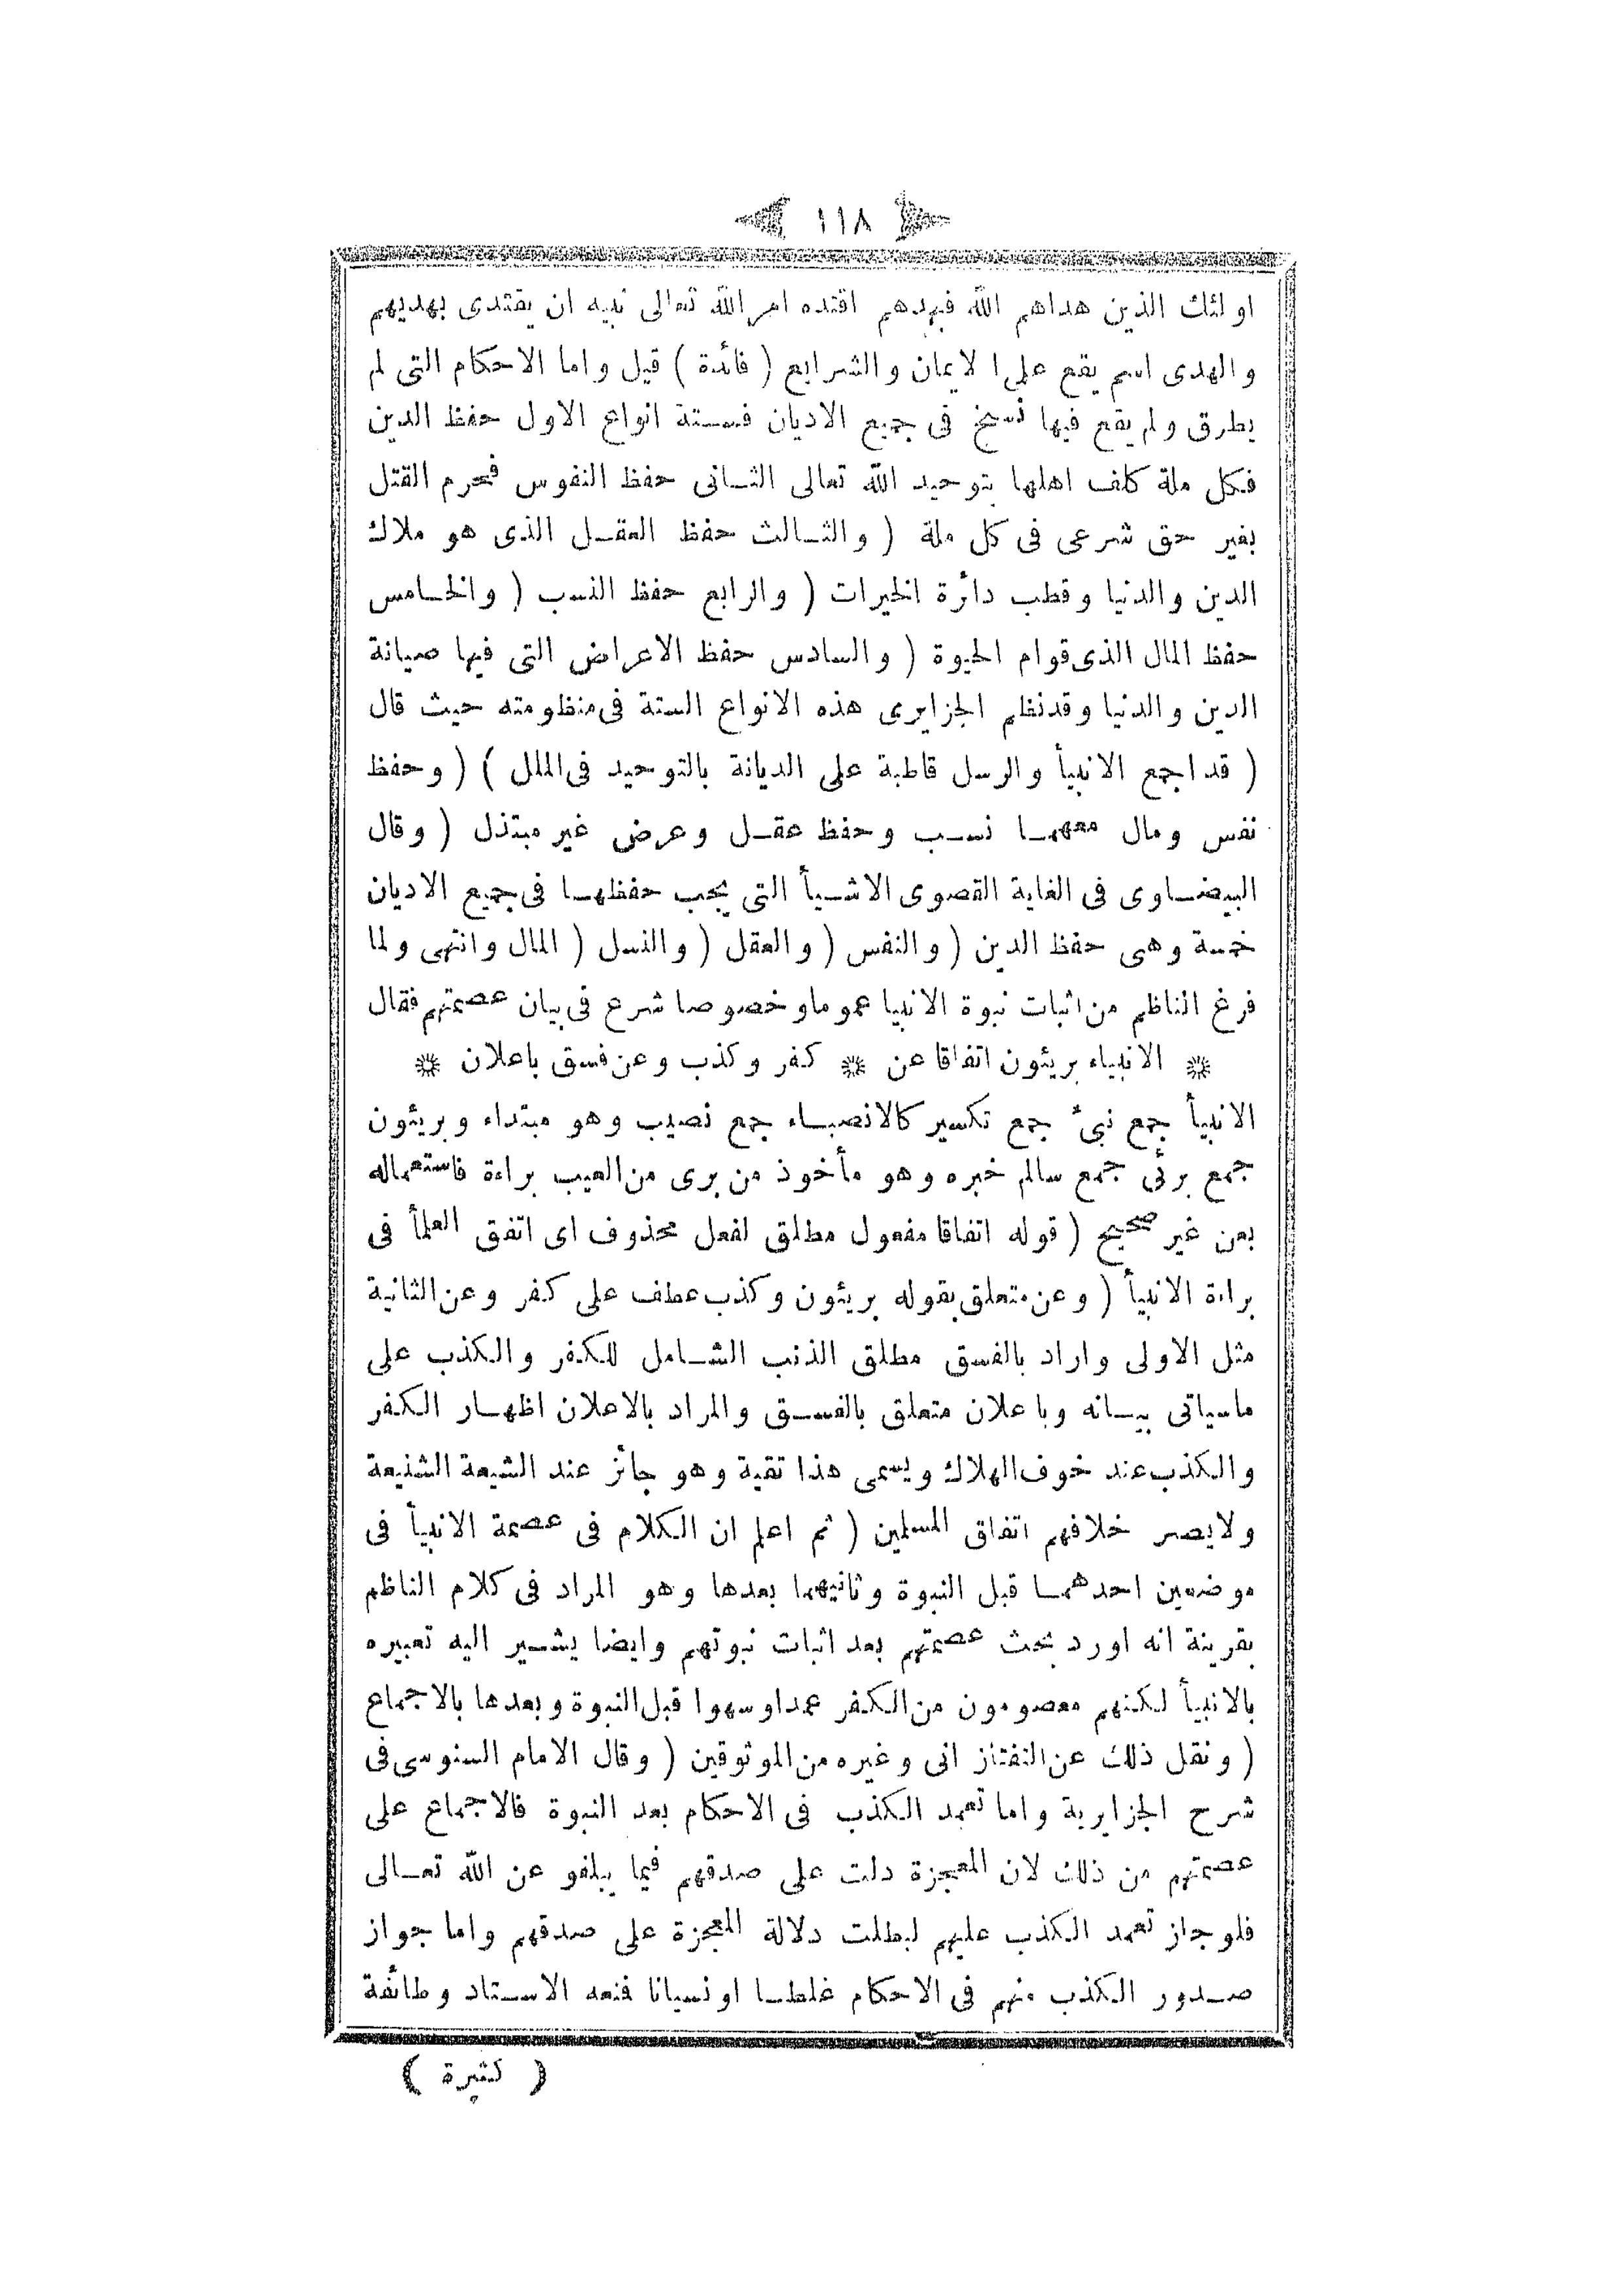 ١١٨
اولئك الذين هداهم الله فبهدهم اقتده امر الله تعالى نبيه ان يقتدى بهديهم
والهدى اسم يقع على الايمان والشرايع ( فائدة ) قيل واما الاحكام التى لم
يطرق ولم يقع فيها نسخ فى جميع الاديان فستة انواع الاول حفظ الدين
فكل ملة كلف اهلها بتوحيد الله تعالى الثانى حفظ النفوس فيحرم القتل
بغير حق شرعى فى كل ملة ( والثالث حفظ العقل الذى هو ملاك
الدين والدنيا وقطب دائرة الخيرات ( والرابع حفظ النسب ( والخامس
حفظ المال الذى قوام الحيوة ( والسادس حفظ الاعراض التى فيها صيانة
الدين والدنيا وقد نظم الجزايرى هذه الانواع الستة فى منظومته حيث قال
( قد اجمع الانبيأ والرسل قاطبة على الديانة بالتوحيد فى الملل ) ( وحفظ
نفس ومال معهما نسب وحفظ عقل وعرض غير مبتذل ( وقال
البيضاوى فى الغاية القصوى الاشيأ التى يجب حفظها فى جميع الاديان
خمسة وهى حفظ الدين ( والنفس ( والعقل ( والنسل ( المال وانتهى ولما
فرغ الناظم من اثبات نبوة الانبيا عموما وخصوصا شرع فى بيان عصمتهم فقال
* الانبياء بريئون اتفاقا عن * كفر وكذب وعن فسق باعلان *
الانبيأ جمع نبئ جمع تكسير كالانصباء جمع نصيب وهو مبتداء وبريئون
جمع برئى جمع سالم خبره وهو مأخوذ من برى من العيب براءة فاستعماله
بمن غير صحيح ( قوله اتفاقا مفعول مطلق لفعل محذوف اى اتفق العلمأ فى
براءة الانبيأ ( وعن متعلق بقوله بريئون وكذب عطف على كفر وعن الثانية
مثل الاولى واراد بالفسق مطلق الذنب الشامل للكفر والكذب على
ماسياتى بيانه وباعلان متعلق بالفسق والمراد بالاعلان اظهار الكفر
والكذب عند خوف الهلاك ويسمى هذا تقية وهو جائز عند الشيعة الشنيعة
ولايضر خلافهم اتفاق المسلمين ( ثم اعلم ان الكلام فى عصمة الانبيأ فى
موضعين احدهما قبل النبوة وثانيهما بعدها وهو المراد فى كلام الناظم
بقرينة انه اورد بحث عصمتهم بعد اثبات نبوتهم وايضا يشير اليه تعبيره
بالانبيأ لكنهم معصومون من الكفر عمدا وسهوا قبل النبوة وبعدها بالاجماع
( ونقل ذلك عن التفتازانى وغيره من الموثوقين ( وقال الامام السنوسى فى
شرح الجزايرية واما تعمد الكذب فى الاحكام بعد النبوة فالاجماع على
عصمتهم من ذلك لان المعجزة دلت على صدقهم فيما يبلغو عن الله تعالى
فلو جاز تعمد الكذب عليهم لبطلت دلالة المعجزة على صدقهم واما جواز
صدور الكذب منهم فى الاحكام غلطا او نسيانا فمنعه الاستاد وطائفة
( كثيرة )